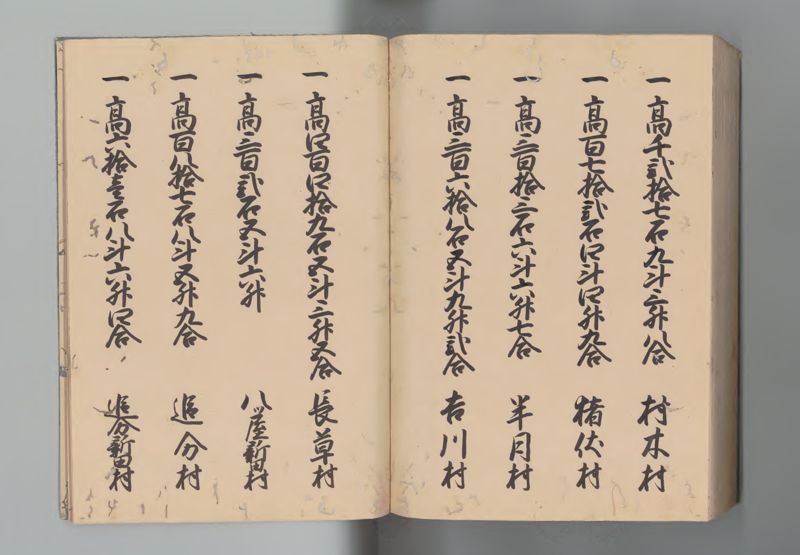 一 高千弐拾七石九斗三升八合 村木村
一 高百七拾弐石四斗四升九合 猪伏村
一 高三百拾三石六斗六升七合 半月村
一 高三百六拾八石五斗九升弐合 吉川村
一 高四百四拾九石五斗三升五合 長草村
一 高三百弐石五斗六升 八ッ屋新田村
一 高百八拾七石八斗五升九合 追分村
一 高六拾壱石八斗六升四合 追分新田村